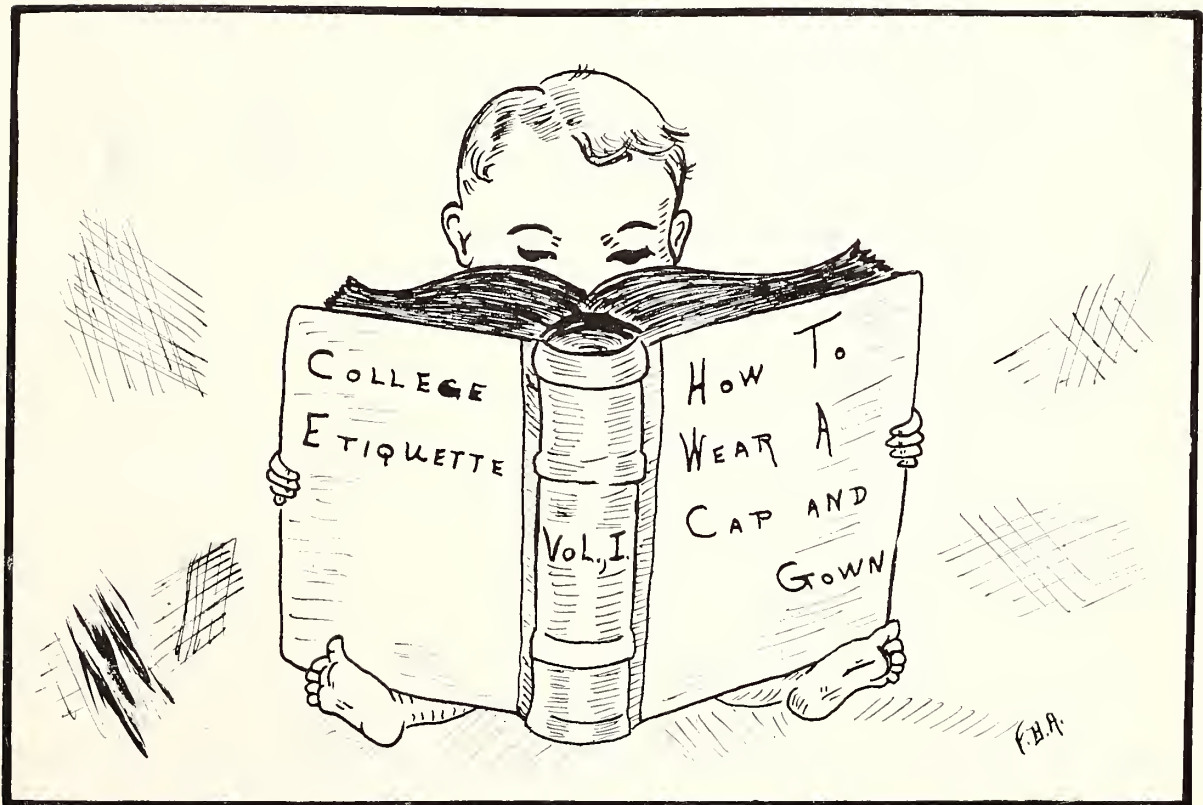 COLLEGE
ETIQUETTE
VOL., I.
HOW TO
WEAR A
CAP AND
GOWN
F.B.A.